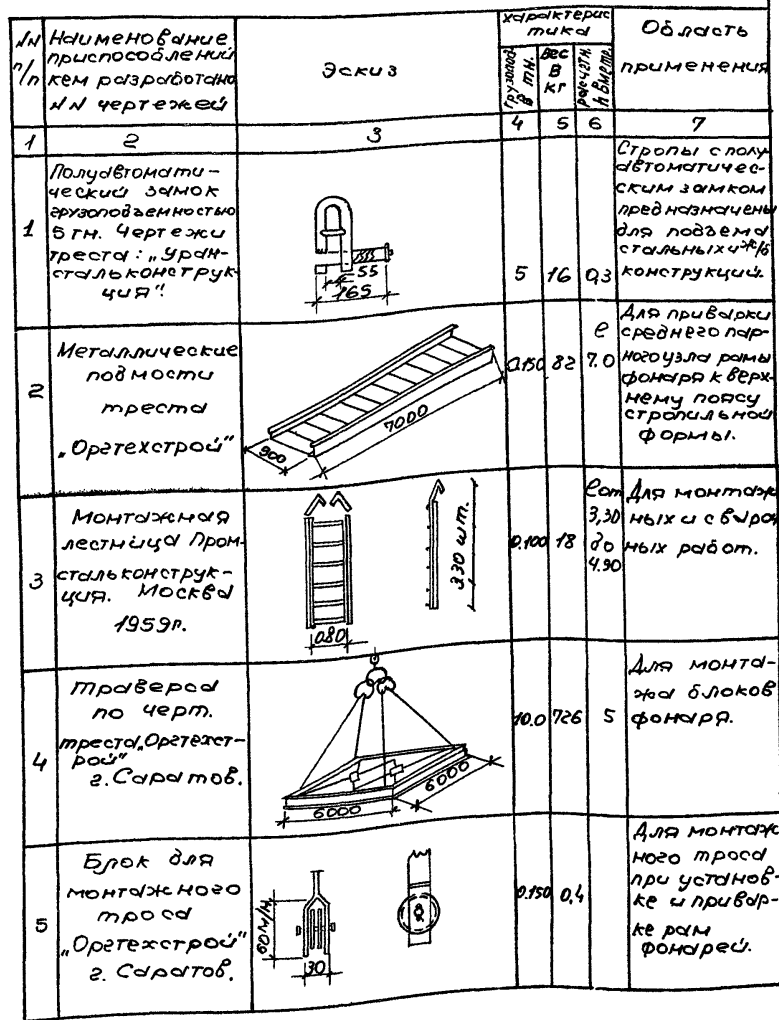 NN
п/п
Наименование
приспособлений
кем разработано
NN чертежей
Эскиз
характерис
тика
грузопод.
в тн.
вес
в
кг
расчетн.
h вметр.
Область
применения
1
2
3
4
5
6
7
1
Полуавтомати-
ческий замок
грузоподъемностью
5 тн. Чертежи
треста: „Урал-
стальконструк-
ция".
55
165
5
16
0,3
Стропы с полу
автоматичес-
ским замком
предназначены
для подъема
стальных и ж/б
конструкций.
2
Металлические
подмости
треста
„Оргтехстрой"
900
7000
0.150
82
ℓ
7.0
Для приварки
среднего пар-
ного узла рамы
фонаря к верх-
нему поясу
стропильной
формы.
3
Монтажная
лестница Пром-
стальконструк-
ция. Москва
1959г.
080
330 шт.
0.100
18
ℓот
3,30
до
4.90
Для монтаж
ных и свароч
ных работ.
4
Траверса
по черт.
треста „Оргтехст-
рой"
г. Саратов.
6000
6000
10.0
726
5
Для монта-
жа блоков
фонаря.
5
Блок для
монтажного
троса
„Оргтехстрой"
г. Саратов.
60м/м.
30
0.150
0,4
Для монтаж
ного троса
при установ-
ке и привар-
ке рам
фонарей.